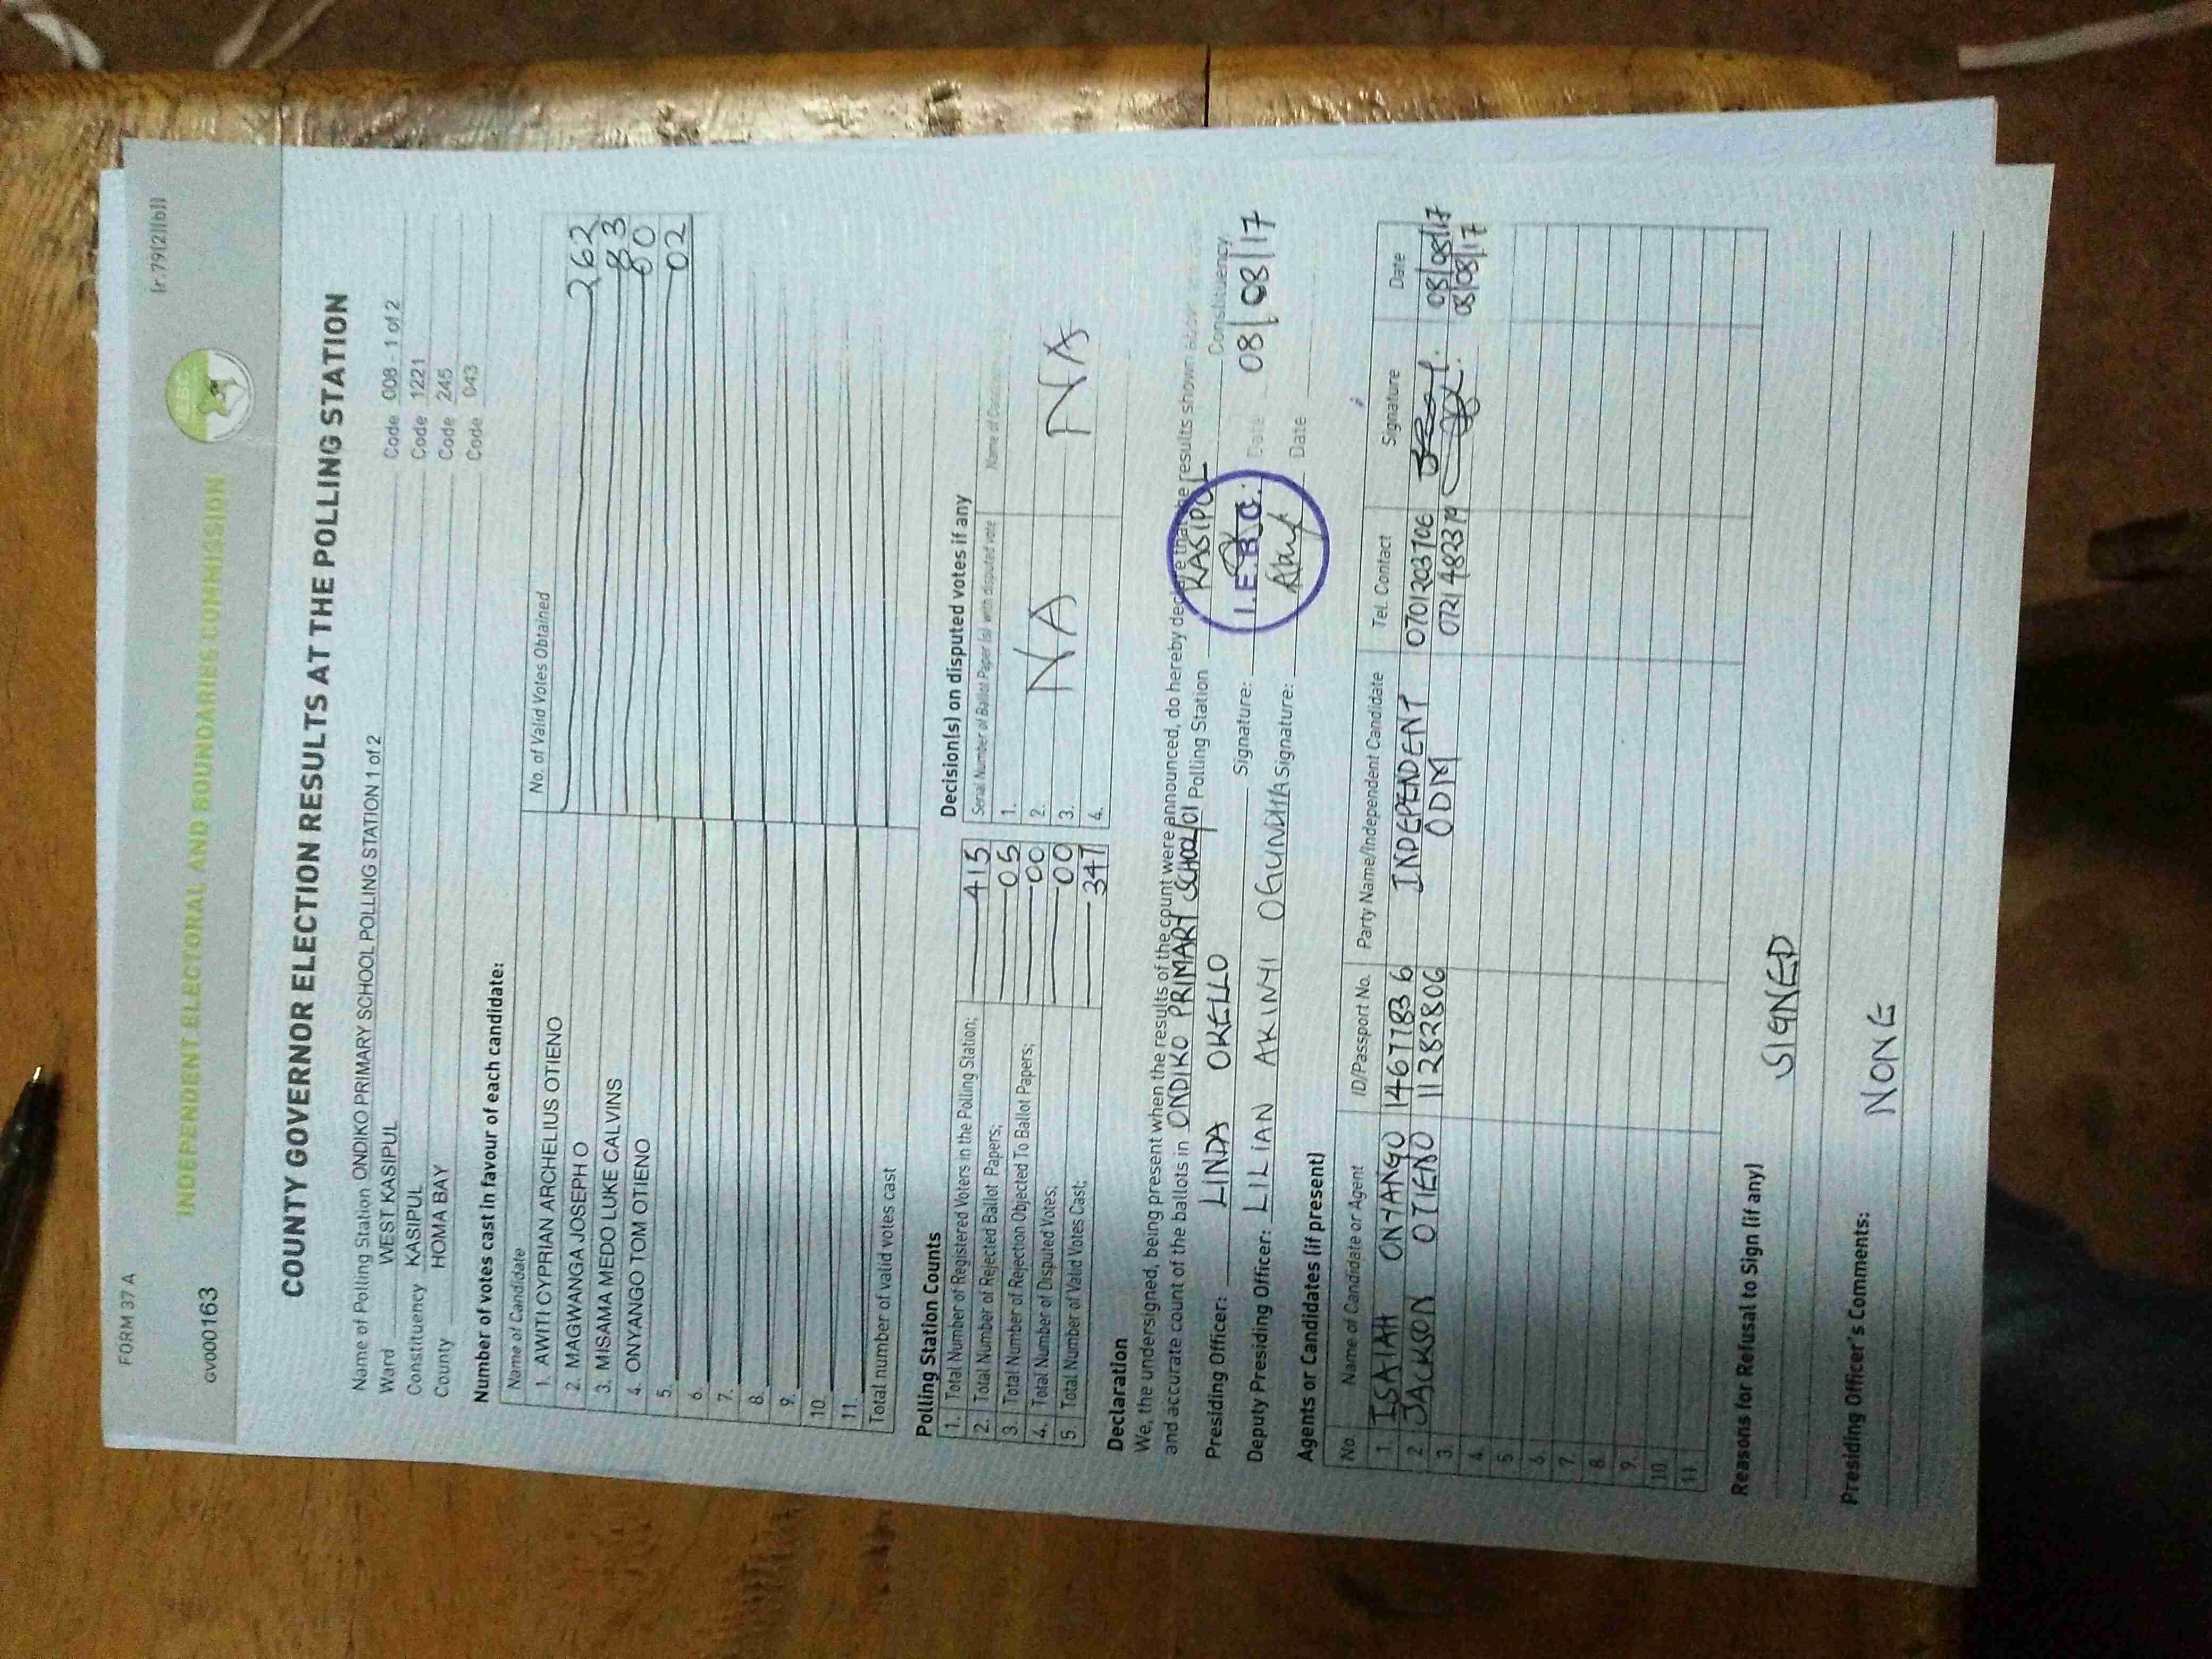 FORM 37 A
(r.79(2)(b))
INDEPENDENT ELECTORAL AND BOUNDARIES COMMISSION
GV000163
COUNTY GOVERNOR ELECTION RESULTS AT THE POLLING STATION
Name of Polling Station ONDIKO PRIMARY SCHOOL POLLING STATION 1 of 2 Code 008 - 1 of 2
Ward WEST KASIPUL Code 1221
Constituency KASIPUL Code 245
County HOMA BAY Code 043
Number of votes cast in favour of each candidate:
Name of Candidate No. of Valid Votes Obtained
1. AWITI CYPRIAN ARCHELIUS OTIENO 262
2. MAGWANGA JOSEPH O 83
3. MISAMA MEDO LUKE CALVINS 00
4. ONYANGO TOM OTIENO 02
5.
6.
7.
8.
9.
10.
11.
Total number of valid votes cast
Polling Station Counts
1. Total Number of Registered Voters in the Polling Station; 415
2. Total Number of Rejected Ballot Papers; 05
3. Total Number of Rejection Objected To Ballot Papers; 00
4. Total Number of Disputed Votes; 00
5. Total Number of Valid Votes Cast; 347
Decision(s) on disputed votes if any
Serial Number of Ballot Paper (s) with disputed vote Name of
1.
2.
3. NA NA
4.
Declaration
We, the undersigned, being present when the results of the count were announced, do hereby declare that the results shown above
and accurate count of the ballots in ONDIKO PRIMARY SCHOOL/01 Polling Station KASIPUL Constituency.
Presiding Officer: LINDA OKELLO Signature: Date 08/08/17
I.E.B.C.
Deputy Presiding Officer: LILIAN AKINYI OGUNDHA Signature: Date
Agents or Candidates (if present)
No. Name of Candidate or Agent ID/Passport No. Party Name/Independent Candidate Tel. Contact Signature Date
1. ISAIAH ONYANGO 14677836 INDEPENDENT 0701203706 08/08/17
2 JACKSON OTIENO 11282806 ODM 08/08/17
3.
4.
5.
6.
7.
8.
9.
10.
11.
Reasons for Refusal to Sign (if any)
SIGNED
Presiding Officer's Comments:
NONE